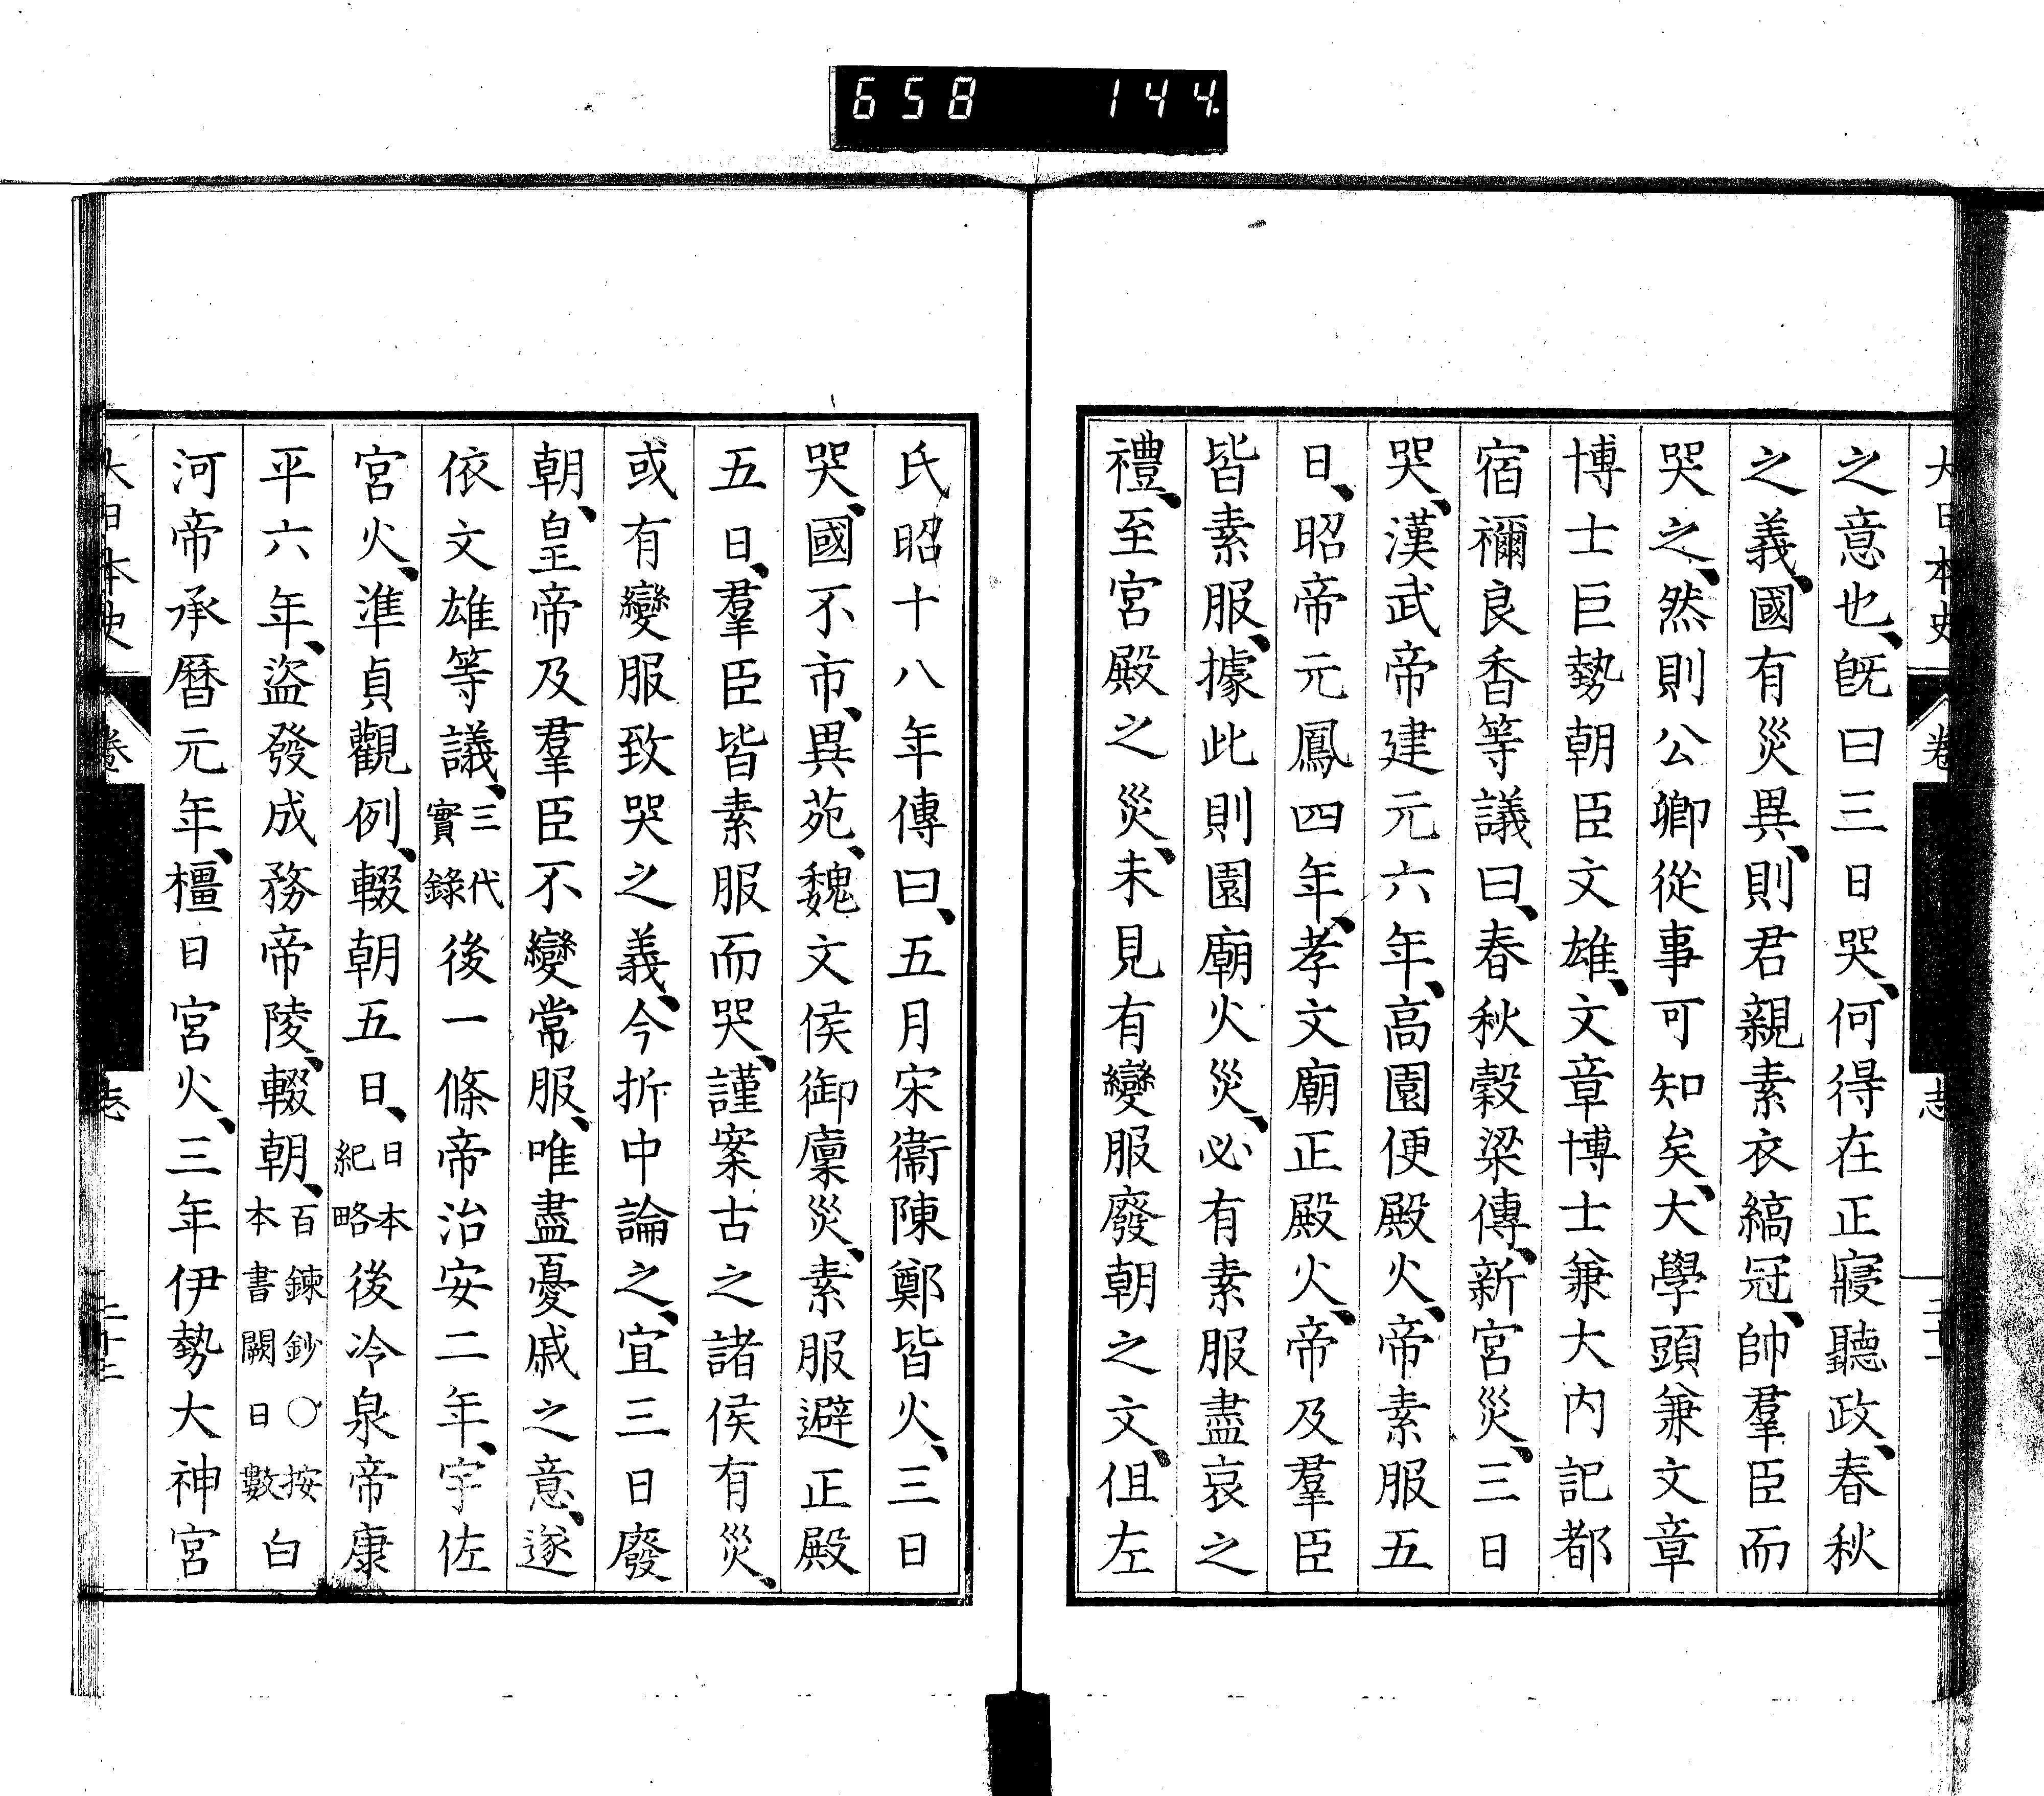 658 144
大日本史 卷 志
之意也、既曰三日哭、何得在正寢聽政、春秋
之義、國有災異、則君親素衣縞冠、帥羣臣而
哭之、然則公卿從事可知矣、大學頭兼文章
博士巨勢朝臣文雄、文章博士兼大內記都
宿禰良香等議曰、春秋穀梁傳、新宮災、三日
哭、漢武帝建元六年、高園便殿火、帝素服五
日、昭帝元鳳四年、孝文廟正殿火、帝及羣臣
皆素服、據此則園廟火災、必有素服盡哀之
禮、至宮殿之災、未見有變服廢朝之文、但左
氏昭十八年傳曰、五月宋衞陳鄭皆火、三日
哭、國不市、異苑、魏文侯御廩災、素服避正殿
五日、羣臣皆素服而哭、謹案古之諸侯有災、
或有變服致哭之義、今折中論之、宜三日廢
朝、皇帝及羣臣不變常服、唯盡憂戚之意、遂
依文雄等議、三代實錄後一條帝治安二年、宇佐
宮火、準貞觀例、輟朝五日、日本紀略後冷泉帝康
平六年、盜發成務帝陵、輟朝、百鍊鈔○按本書闕日數白
河帝承曆元年、橿日宮火、三年伊勢大神宮
大日本史 卷 志 二十二